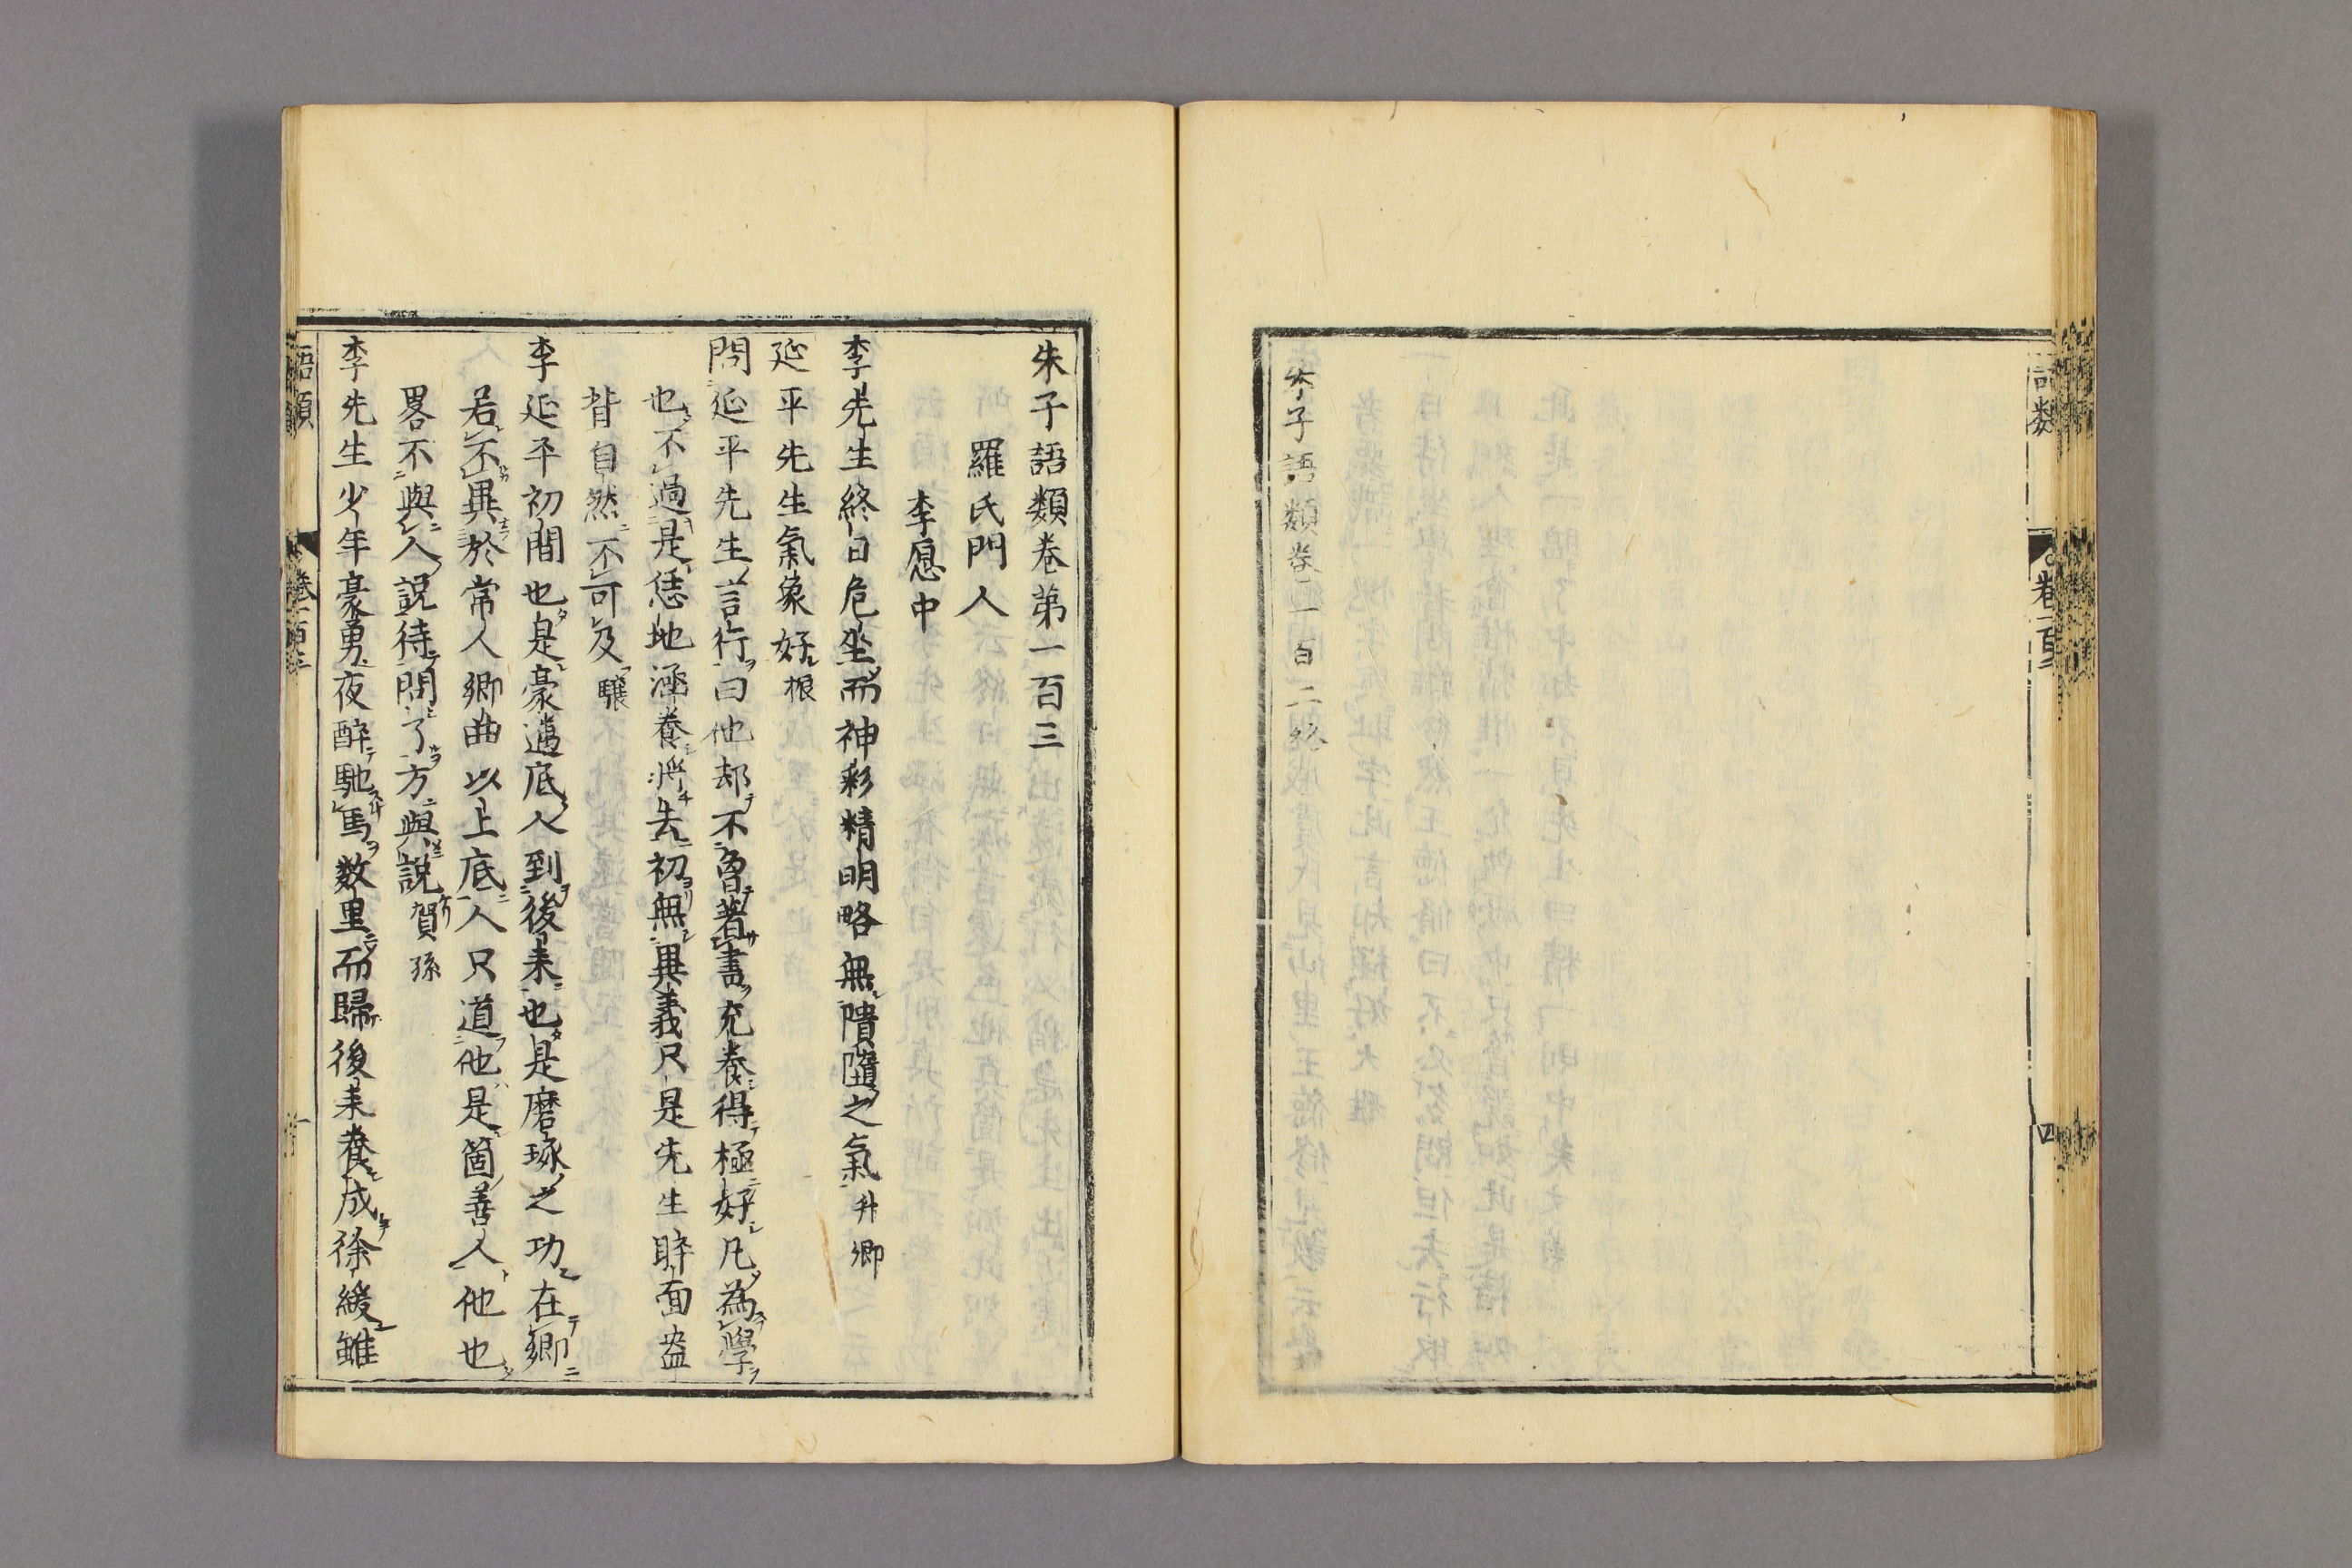 語類
卷一百二
四
朱子語類卷一百二終
朱子語類卷第一百三
羅氏門人
李愿中
李先生終日危坐而神彩精明略無隤墮之氣升卿
延平先生氣象好振
問延平先生言行曰他却不曾著書充養得極好凡為學
也不過是恁地涵養將去初無異義只是先生睟面盎
背自然不可及驤
李延平初間也是豪邁底人到後来也是磨琢之功在鄉
若不異於常人鄉曲以上底人只道他是箇善人他也
畧不與人說待問了方與說賀孫
李先生少年豪勇夜醉馳馬数里而歸後来養成徐緩雖
語類
卷一百三
一